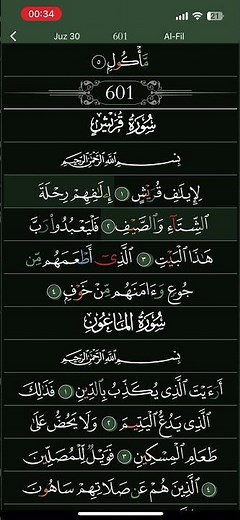 00:34 21
Juz 30 601 Al-Fil
مَّأْكُولٍۭ ٥
601
سُورَةُ قُرَيْشٍ
بِسْمِ ٱللَّهِ ٱلرَّحْمَٰنِ ٱلرَّحِيمِ
لِإِيلَٰفِ قُرَيْشٍ ١ إِۦلَٰفِهِمْ رِحْلَةَ
ٱلشِّتَآءِ وَٱلصَّيْفِ ٢ فَلْيَعْبُدُوا۟ رَبَّ
هَٰذَا ٱلْبَيْتِ ٣ ٱلَّذِىٓ أَطْعَمَهُم مِّن
جُوعٍ وَءَامَنَهُم مِّنْ خَوْفٍۭ ٤
سُورَةُ ٱلْمَاعُونِ
بِسْمِ ٱللَّهِ ٱلرَّحْمَٰنِ ٱلرَّحِيمِ
أَرَءَيْتَ ٱلَّذِى يُكَذِّبُ بِٱلدِّينِ ١ فَذَٰلِكَ
ٱلَّذِى يَدُعُّ ٱلْيَتِيمَ ٢ وَلَا يَحُضُّ عَلَىٰ
طَعَامِ ٱلْمِسْكِينِ ٣ فَوَيْلٌ لِّلْمُصَلِّينَ
٤ ٱلَّذِينَ هُمْ عَن صَلَاتِهِمْ سَاهُونَ